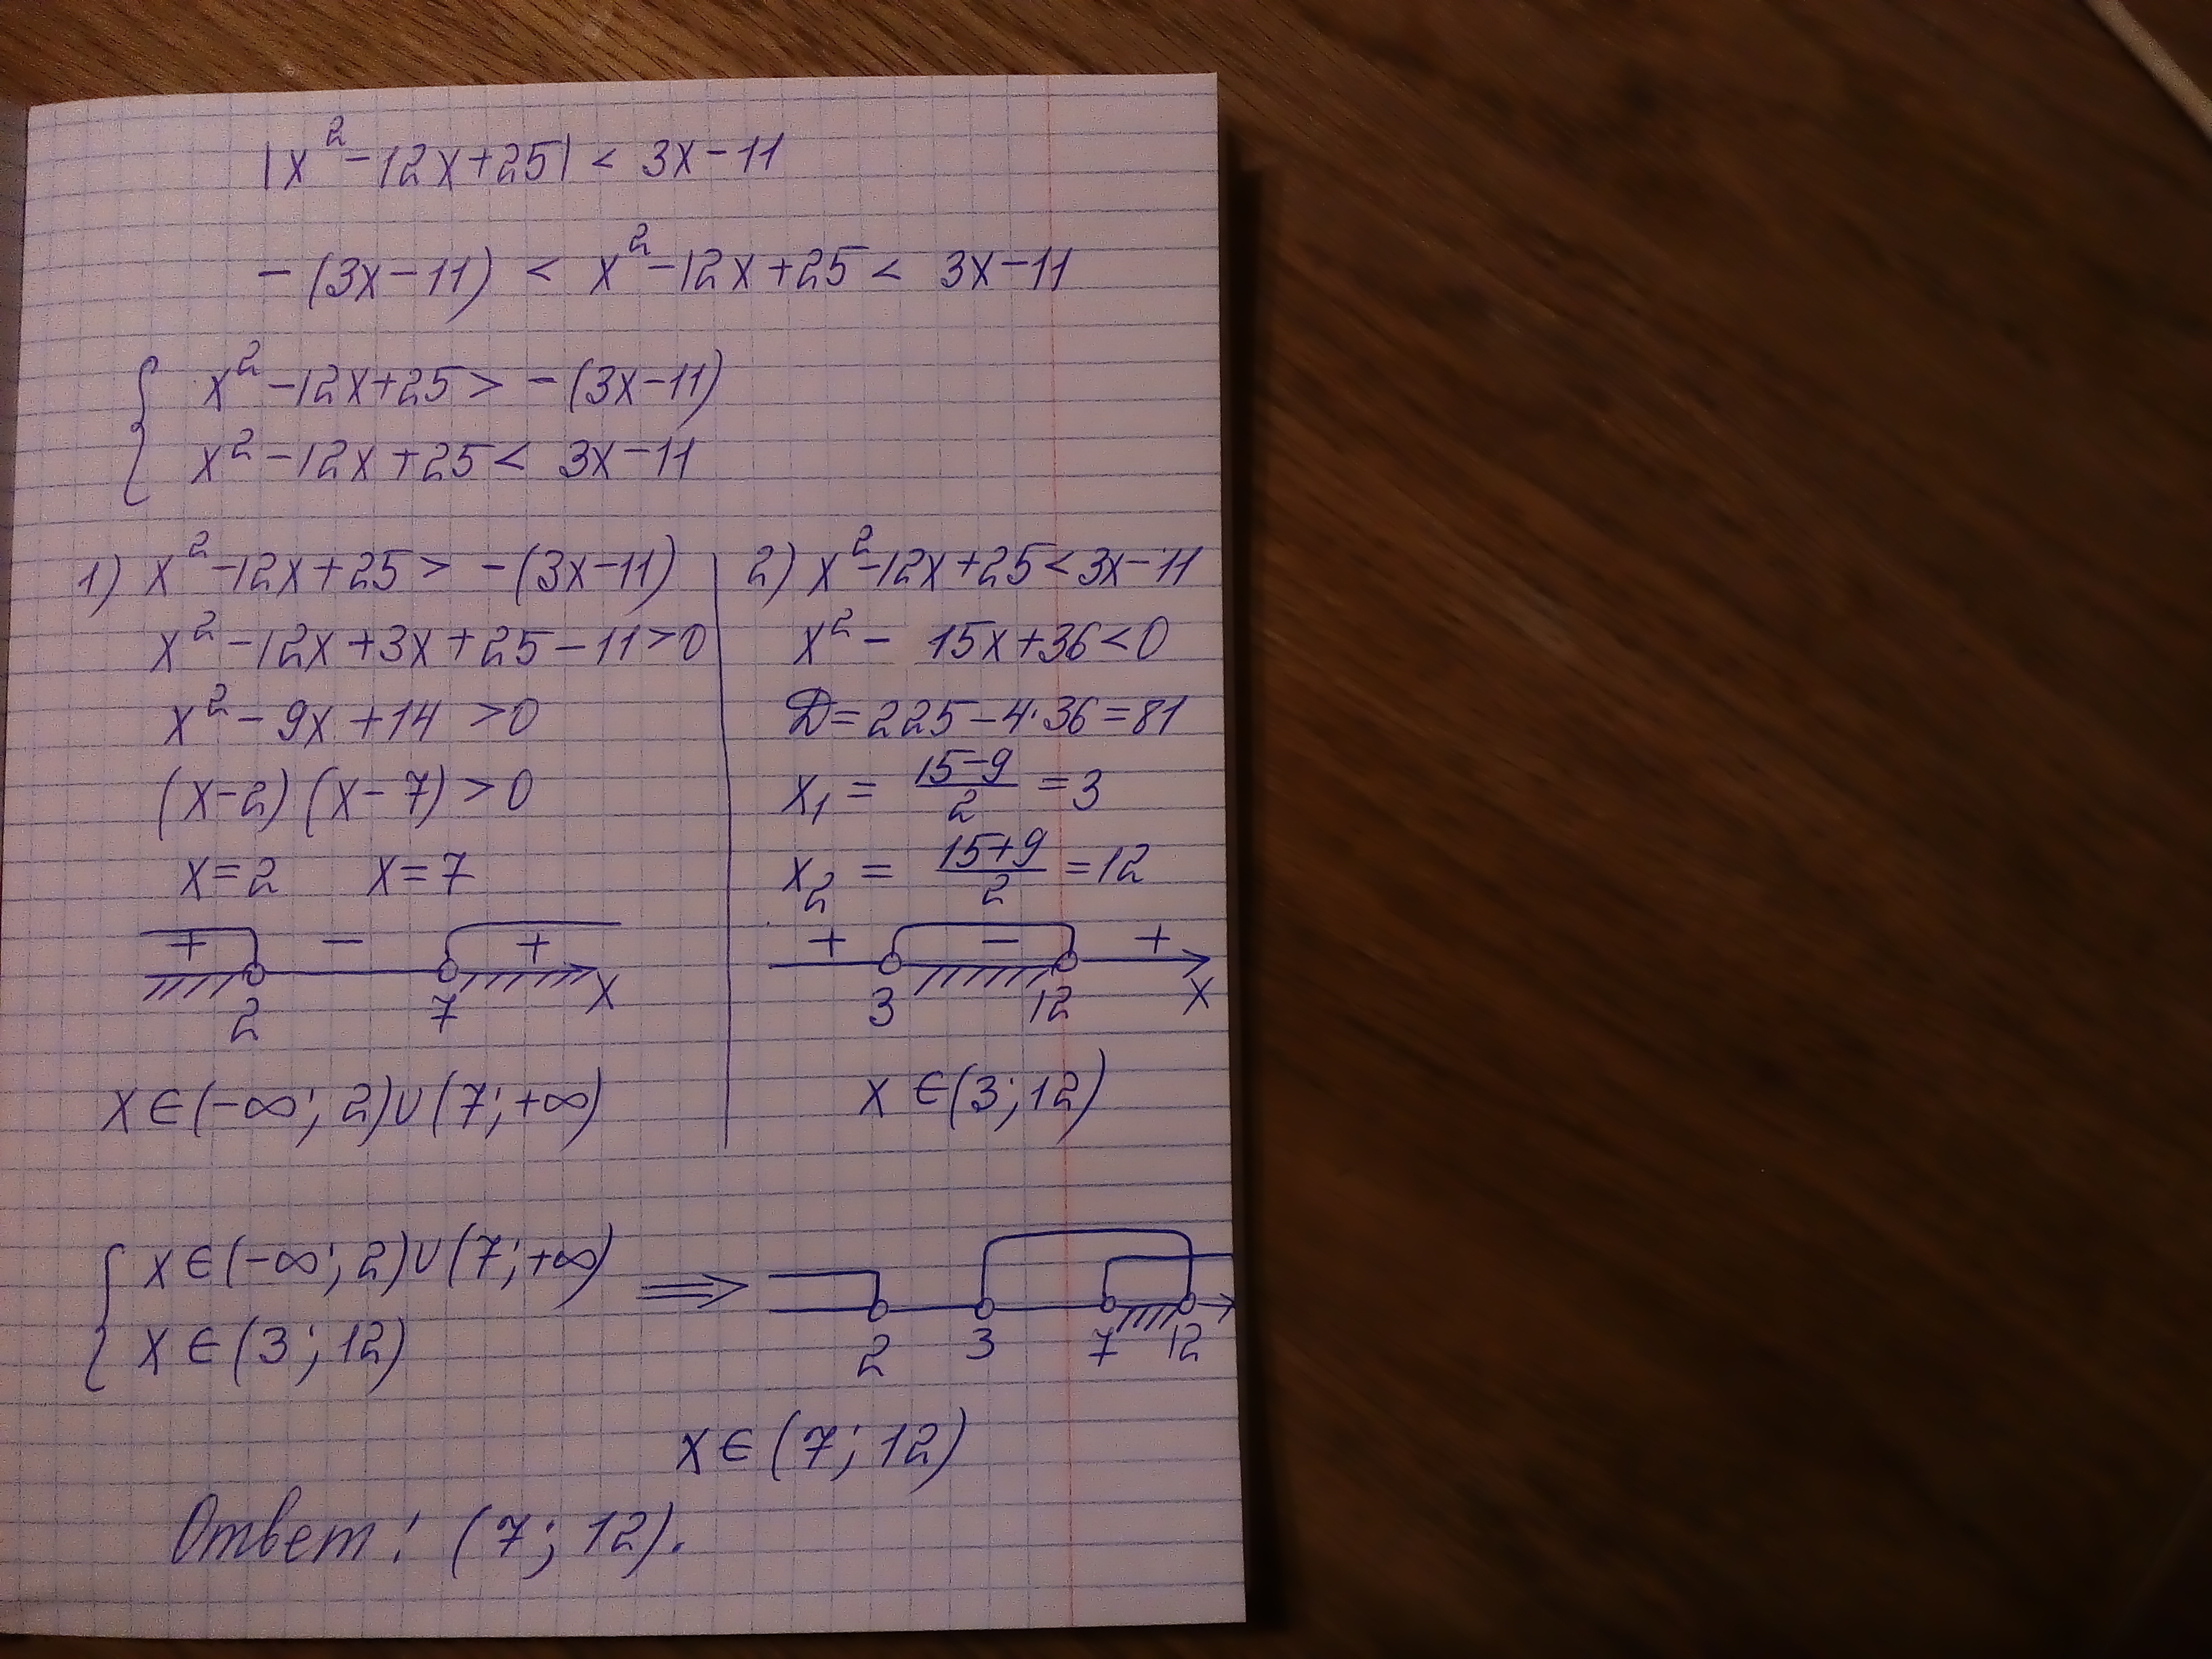 |x²-12x+25| < 3x-11
-(3x-11) < x²-12x+25 < 3x-11
{ x²-12x+25 > -(3x-11)
x²-12x+25 < 3x-11
1) x²-12x+25 > -(3x-11)
x²-12x+3x+25-11>0
x²-9x+14 >0
(x-2)(x-7)>0
x=2 x=7
+ - +
2 7 x
x∈(-∞; 2)∪(7; +∞)
2) x²-12x+25<3x-11
x²- 15x+36<0
D=225-4·36=81
x₁ = (15-9)/2 =3
x₂ = (15+9)/2 =12
+ - +
3 12 x
x ∈(3;12)
{ x∈(-∞; 2)∪(7; +∞)
x∈(3; 12)
⟹
2 3 7 12
x∈(7; 12)
Ответ: (7; 12).